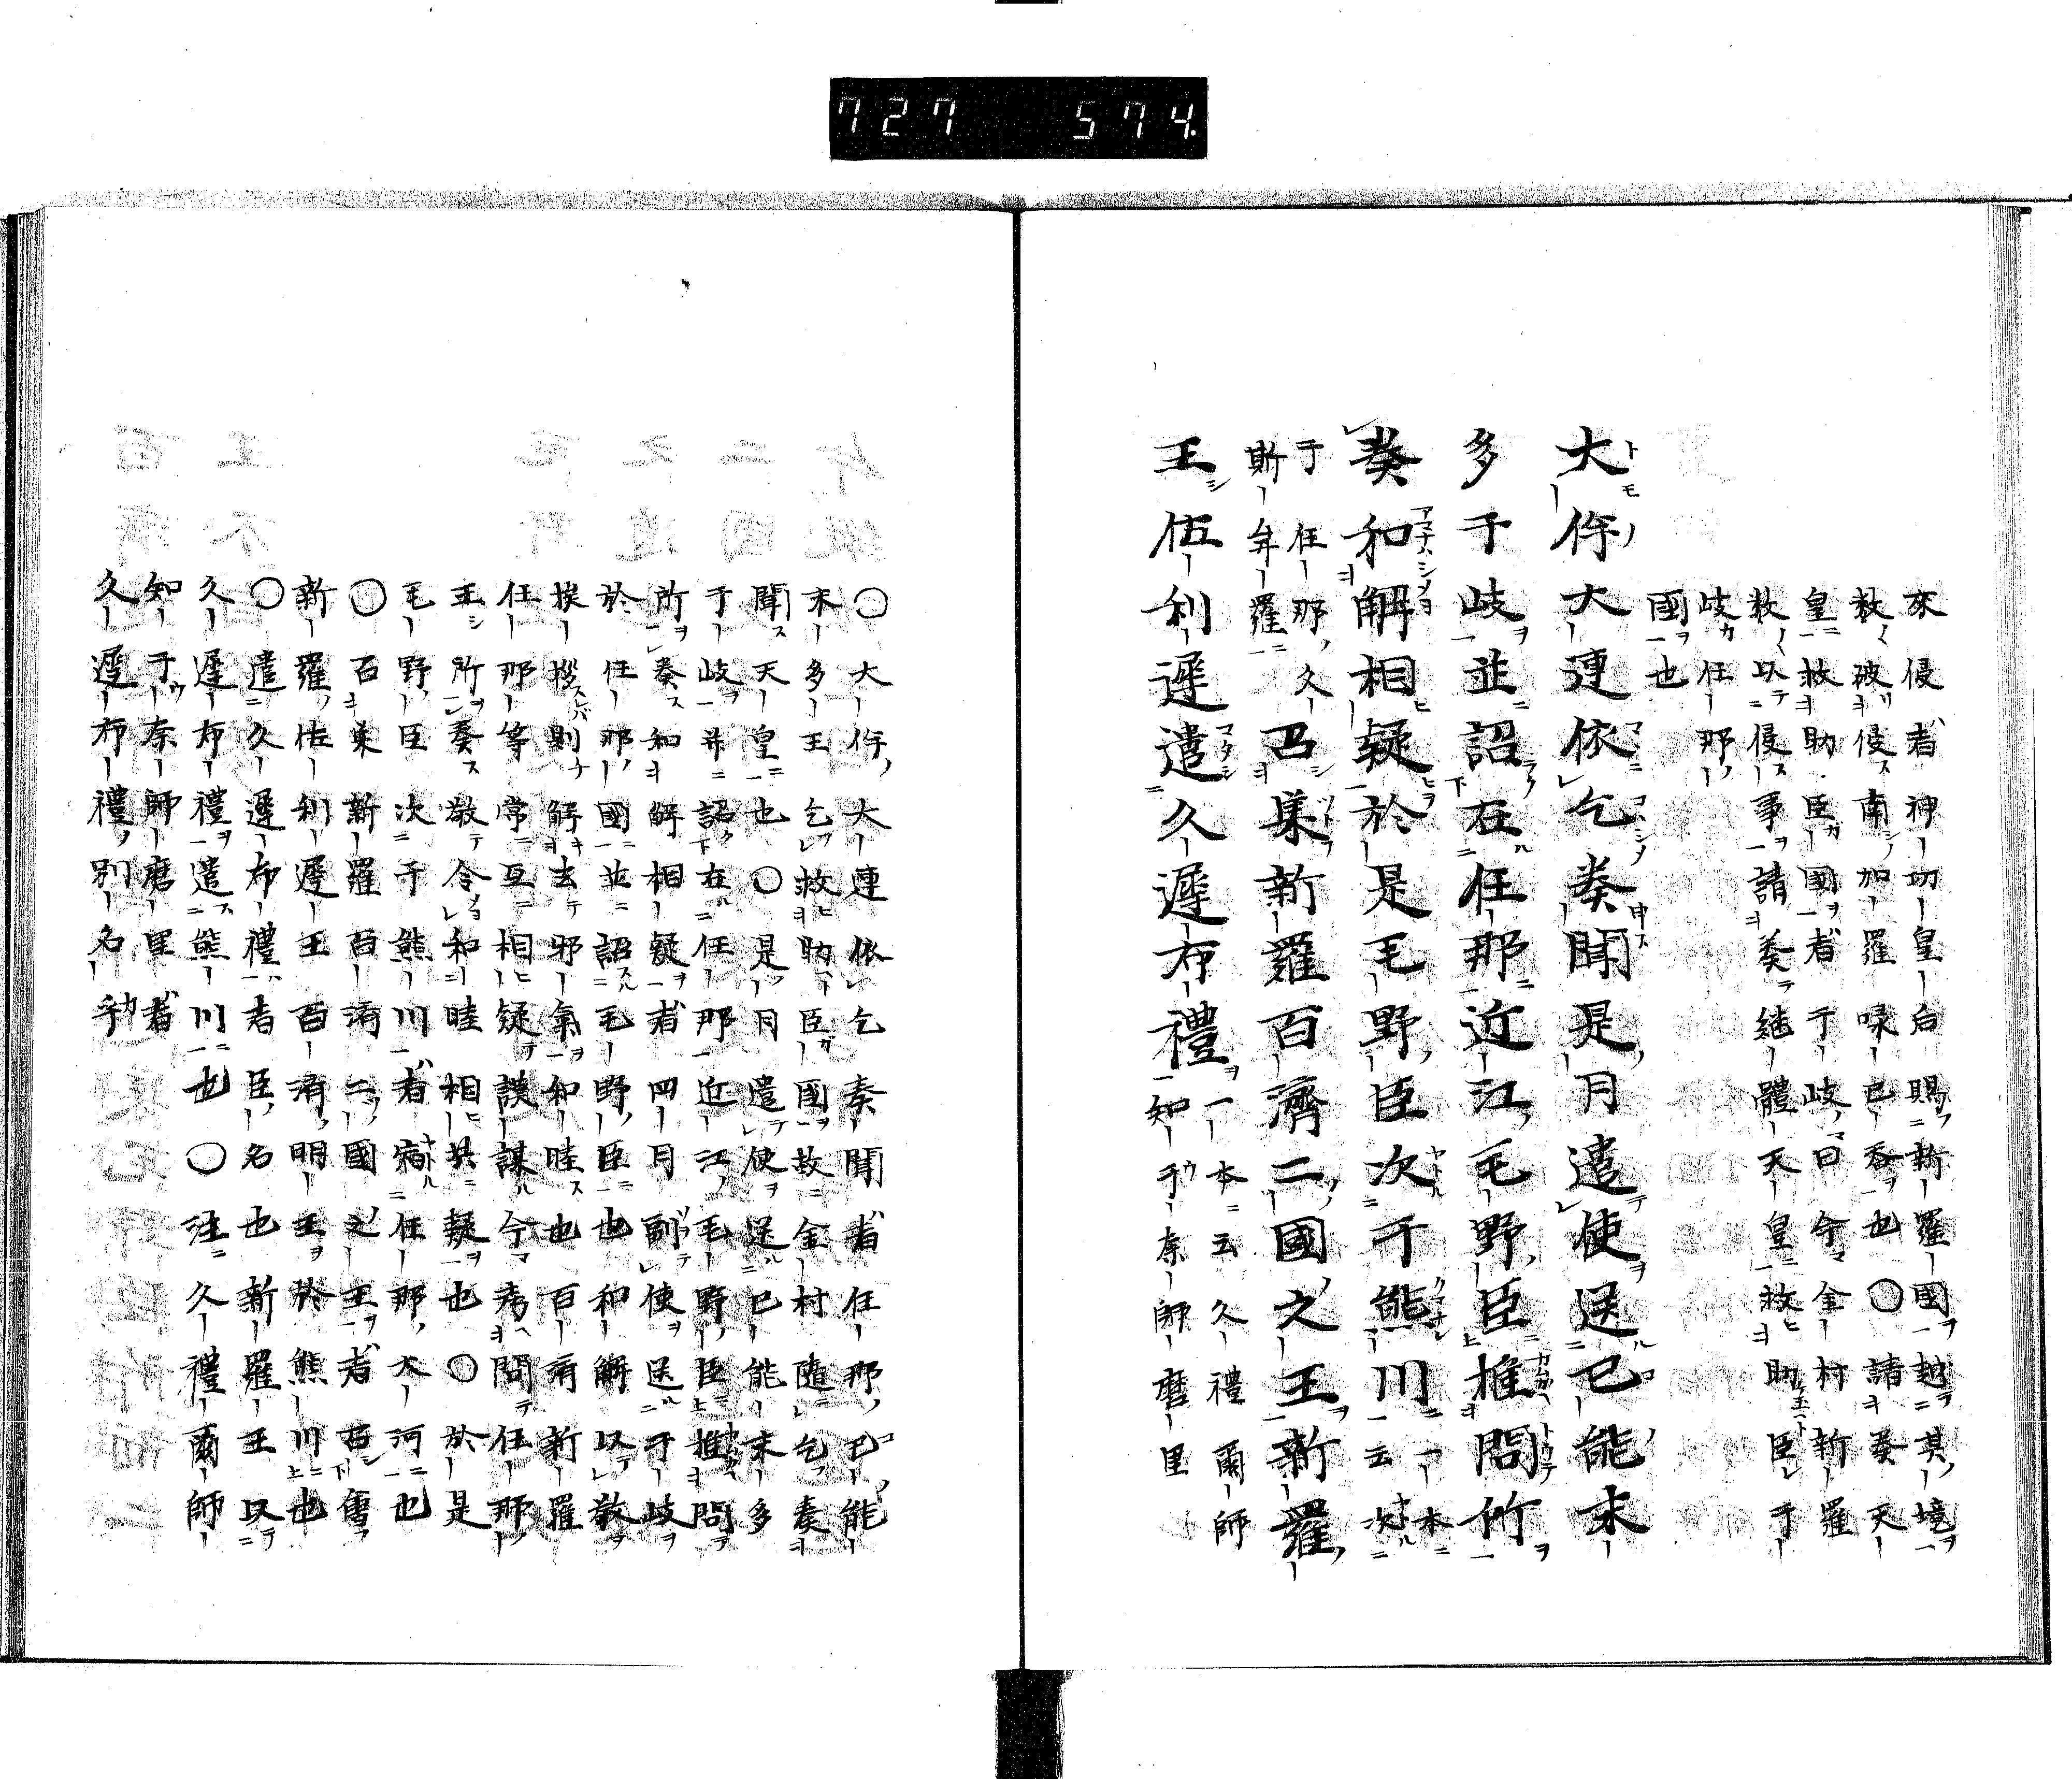 727 574.
來侵者神功皇后賜新羅國越其境
救々破侵南加羅㖨己呑也○請奏天
皇救助臣國者于岐曰今金村新羅
救々以侵事請奏継體天皇救助臣于
岐任那
國也
大伴大連依乞奏聞是月遣使送己能末
多于岐並詔在任那近江毛野臣推問所
奏和解相疑於是毛野臣次于熊川一本云次
于任那久斯牟羅召集新羅百濟二國之王新羅
王佐利遲遣久遲布禮一本云久禮爾師知于奈師磨里
○大伴大連依乞奏聞者任那己能
末多王乞救助臣國故金村隨乞奏
聞天皇也○是月遣使送己能末多
于岐并詔在任那近江毛野臣推問
所奏和解相疑者四月副使送于岐
於任那國並詔毛野臣也和解以敬
挨拶則解去邪氣和睦也百済新羅
任那等常互相疑謀今為問任那
王所奏敬令和睦相共疑也○於是
毛野臣次于熊川者宿任那大河也
○召集新羅百済二國之王者召曹
新羅佐利遲王百済明王於熊川也
○遣久遲布禮者臣名也新羅王以
久遲布禮遣熊川也○注久禮爾師
知于奈師磨里者
久遲布禮別名乎